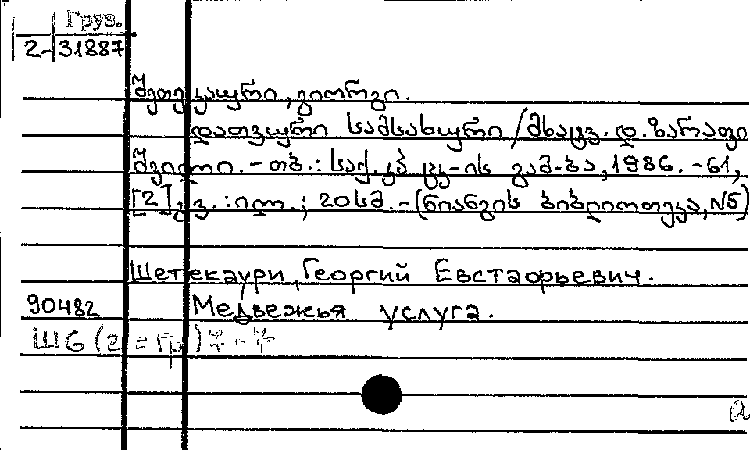 Груз.
2-31887
შეთეკაური, გიორგი.
დათვური სამსახური / მხატვ. დ. ზარაფი
შვილი. - თბ.: საქ. კპ ცკ-ის გამ-ბა, 1986. - 61,
[2] გვ. : ილ. ; 20 სმ. - (ნიანგის ბიბლიოთეკა, №5)
Шетекаури, Георгий Евстафьевич.
90482 Медвежья услуга.
Ш6(2=Гр)7-7